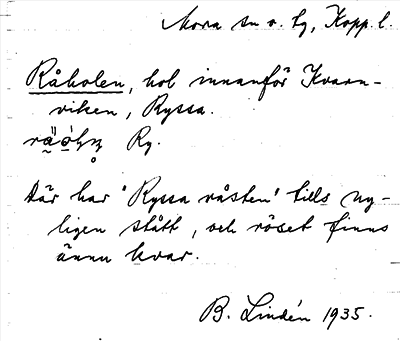 Mora sn o. tg, Kopp. l.
Råholen, hol innanför Kvarn-
viken, Ryssa.
Ry.
Där har "Ryssa råsten" tills ny-
ligen stått, och röset finns
ännu kvar.
B. Lindén 1935.